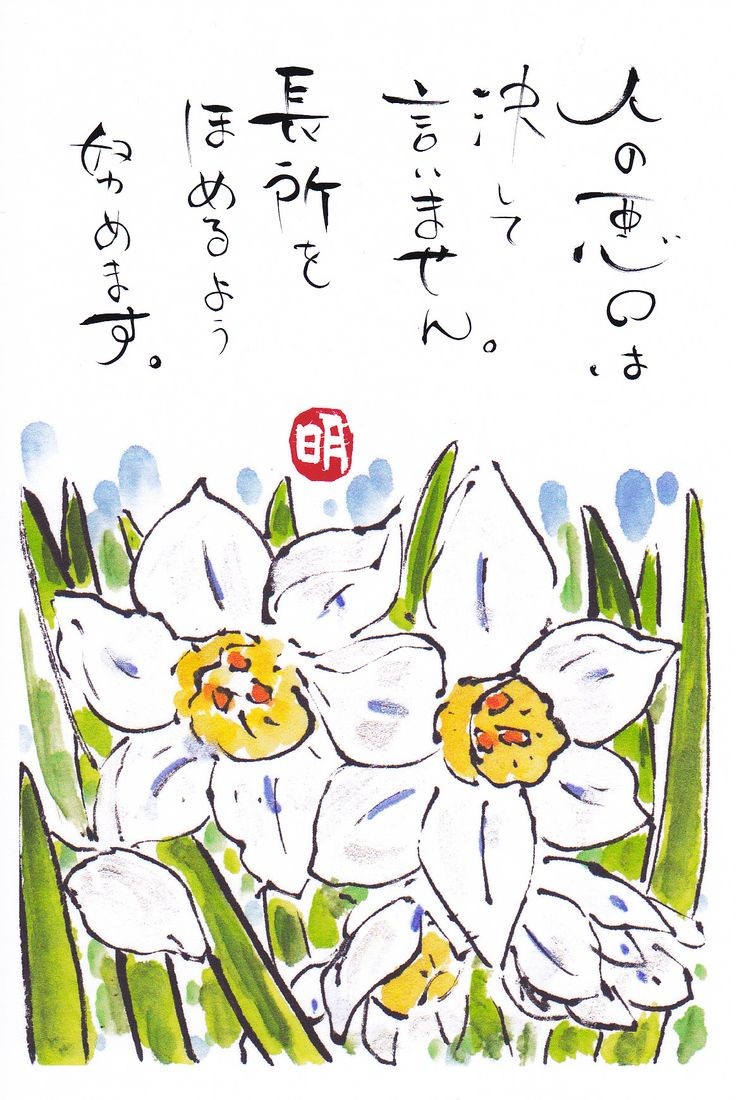 人の悪口は
決して
言いません。
長所を
ほめるよう
努めます。
明